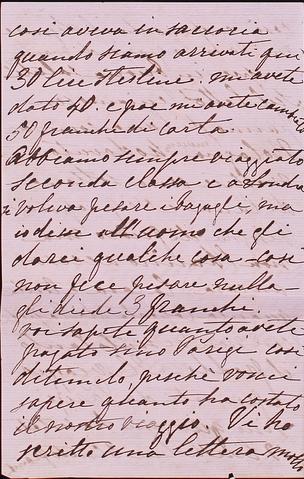 così aveva in saccocia
quando siamo arrivati qui
30 lire sterline. mi avete
dato 40. e poi mi avete cambiato
50 franchi di carta.
Abbiamo sempre viaggiato
seconda classe e a Londra
si voleva pesare i bagagli, ma
io dissi all'uomo che gli
darei qualche cosa - così
non fece pesare nulla -
gli diede 3 franchi.
voi sapete quanto avete
pagato sino Parigi così
ditemelo, perchè vorrei
sapere quanto ha costato
il nostro viaggio. Vi ho
scritto una lettera molto